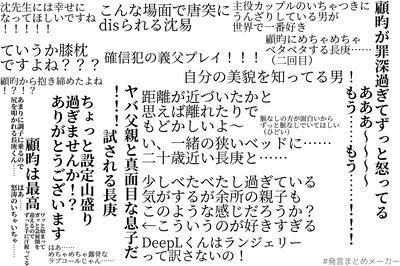 沈先生には幸せに
なってほしいですね
！！！！！
こんな場面で唐突に
disられる沈易
主役カップルのいちゃつきに
うんざりしている男が
世界で一番好き
顧昀にめちゃめちゃ
ベタベタする長庚……
（二回目）
ていうか膝枕
ですよね？？？
確信犯の義父プレイ！！！
自分の美貌を知ってる男！
顧昀が罪深過ぎてずっと怒ってる
あああ〜〜〜
！もう……もう……！！！！
顧昀から抱き締めたよね
！？！？
距離が近づいたかと
思えば離れたりで
もどかしいよ〜
脈なしの方が面白いから
ずっと脈なしでいてほしい
（ひどい）
い、一緒のいきベッドに……
二十歳近い長庚と……
ヤバ父親と真面目な息子だ
！！！！試される長庚
ちょっと設定山盛り
過ぎませんか！？
ありがとうございます
あまりに調子に乗るので
尻を叩かれる長庚くん……
はあ……
怒涛のいちゃいちゃ……
顧昀は最高
はあ……
めちゃめちゃ露骨な
ラブコールじゃん……
少しべたべたし過ぎている
気がするが余所の親子も
このような感じだろうか？
←こういうのが好きすぎる
DeepLくんはランジェリー
って訳さないの！
#発言まとめメーカー